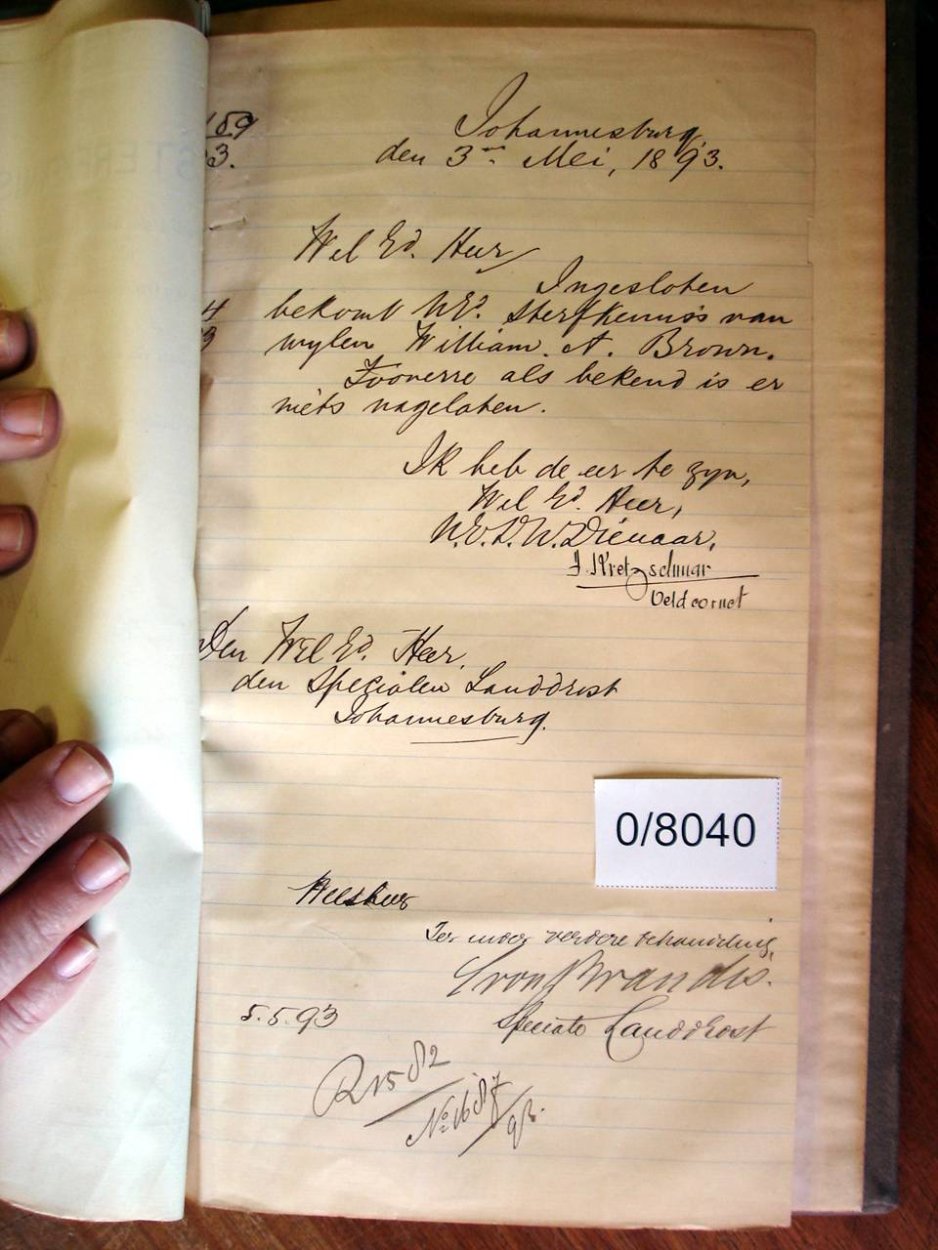 189
93.
Johannesburg,
den 3en Mei, 1893.
Wel Ed. Heer,
Ingesloten
bekomt UEd. Sterfkennis van
wylen William. A. Brown.
Zooverre als bekend is er
niets nagelaten.
Ik heb de eer te zyn,
Wel Ed. Heer,
U.E.D.W. Dienaar,
J. Kretzschmar
Veldcornet
Den Wel Ed. Heer,
den Specialen Landdrost
Johannesburg.
0/8040
Weesheer
Ter verdere behandeling,
Brandis.
5.5.93
Speciale Landdrost
R 1582
No 1687/93.